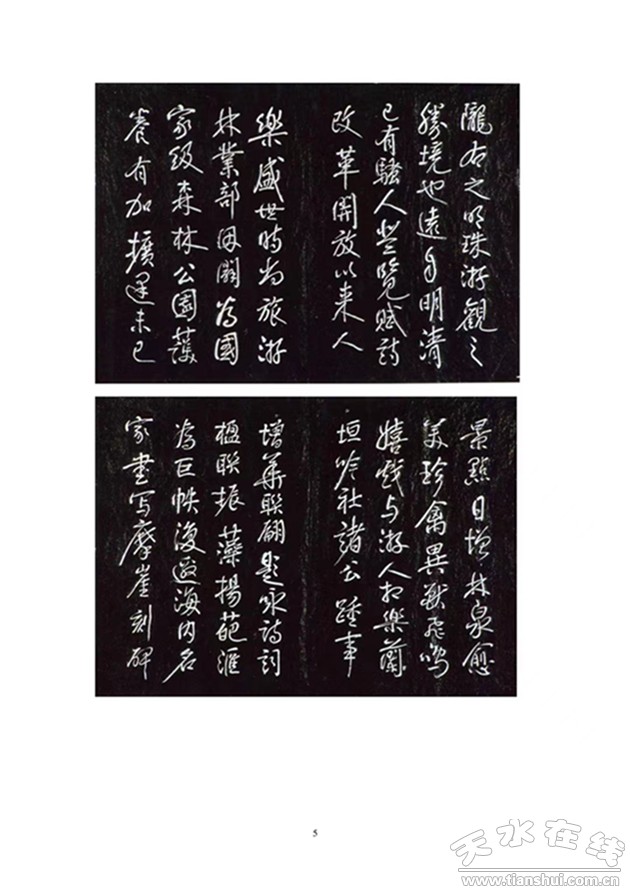 隴右之明珠游觀之
勝境也遠自明清
已有騷人登覽賦詩
改革開放以来人
樂盛世時尚旅游
林業部因闢為國
家级森林公園護
養有加擴建未已
景點日增林泉愈
美珍禽異獸飛鳴
嬉戲与游人相樂蘭
垣吟社諸公踵事
增華聯翩題咏詩詞
楹聯振藻揚葩滙
為巨帙復邀海内名
家書写摩崖刻碑
5
天水在线
www.tianshui.com.cn